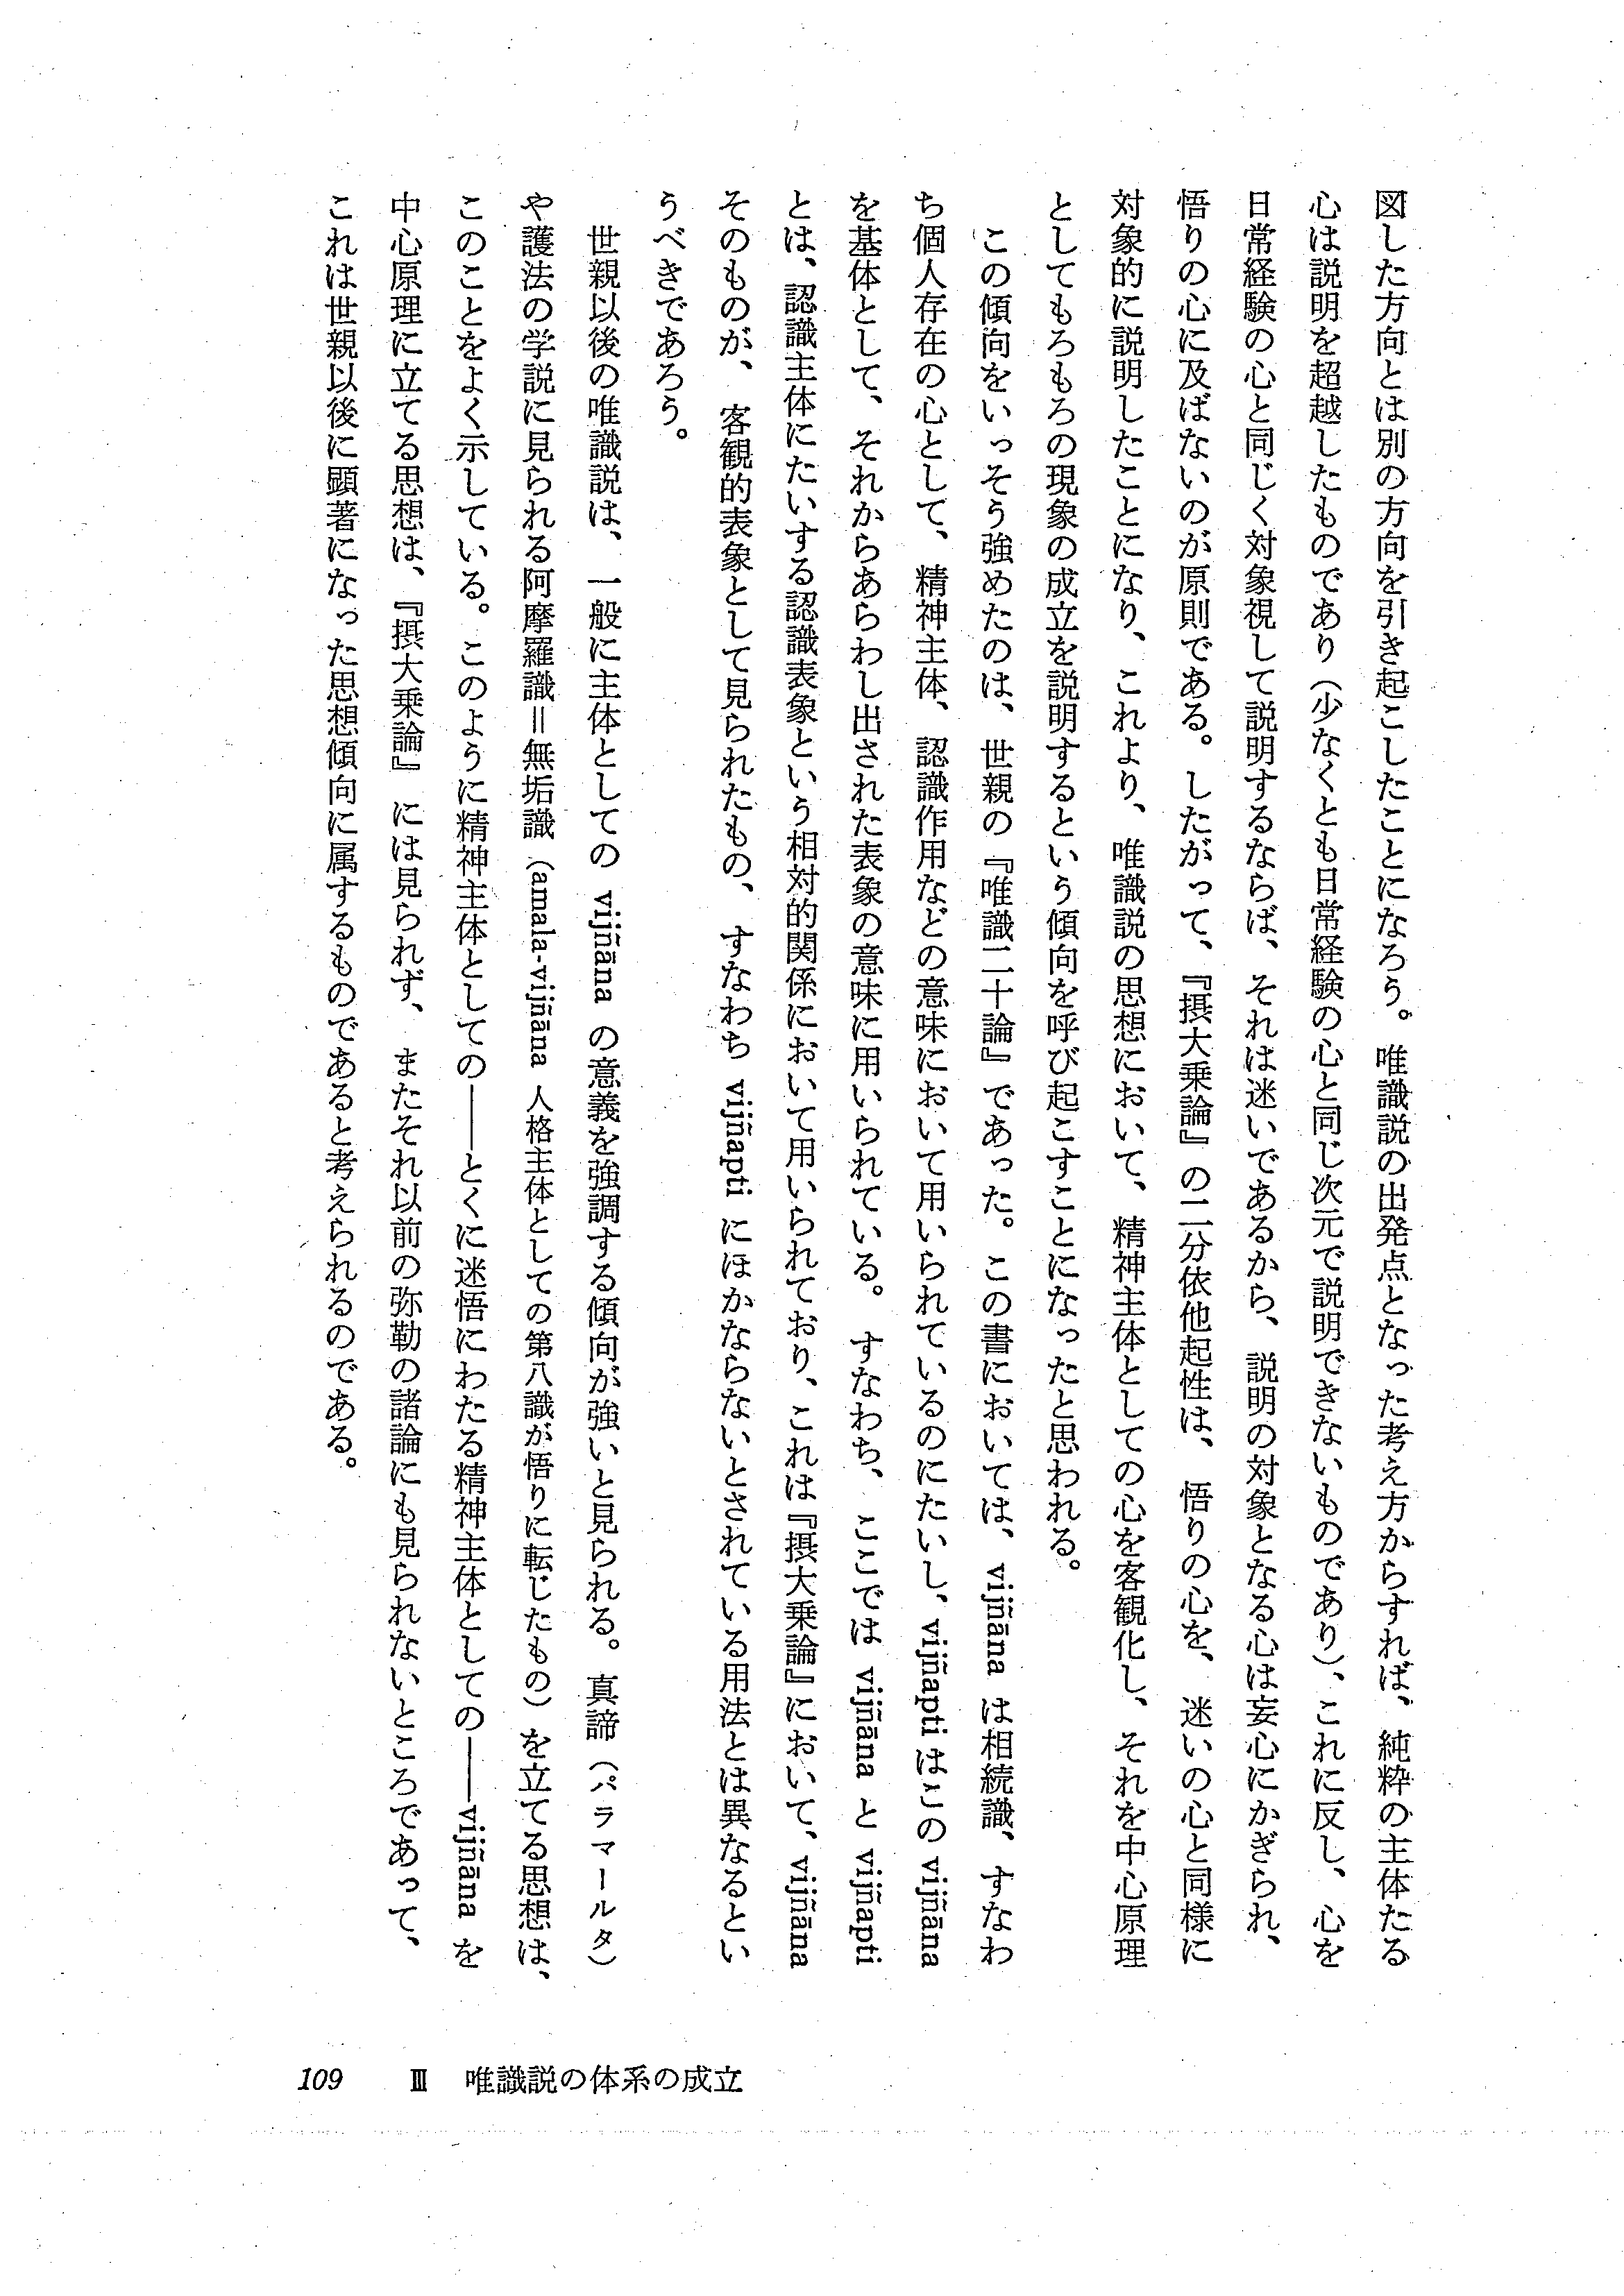 図した方向とは別の方向を引き起こしたことになろう。唯識説の出発点となった考え方からすれば、純粋の主体たる
心は説明を超越したものであり（少なくとも日常経験の心と同じ次元で説明できないものであり）、これに反し、心を
日常経験の心と同じく対象視して説明するならば、それは迷いであるから、説明の対象となる心は妄心にかぎられ、
悟りの心に及ばないのが原則である。したがって、『摂大乗論』の二分依他起性は、悟りの心を、迷いの心と同様に
対象的に説明したことになり、これより、唯識説の思想において、精神主体としての心を客観化し、それを中心原理
としてもろもろの現象の成立を説明するという傾向を呼び起こすことになったと思われる。
この傾向をいっそう強めたのは、世親の『唯識二十論』であった。この書においては、vijñāna は相続識、すなわ
ち個人存在の心として、精神主体、認識作用などの意味において用いられているのにたいし、vijñapti はこの vijñāna
を基体として、それからあらわし出された表象の意味に用いられている。すなわち、ここでは vijñāna と vijñapti
とは、認識主体にたいする認識表象という相対的関係において用いられており、これは『摂大乗論』において、vijñāna
そのものが、客観的表象として見られたもの、すなわち vijñapti にほかならないとされている用法とは異なるとい
うべきであろう。
世親以後の唯識説は、一般に主体としての vijñāna の意義を強調する傾向が強いと見られる。真諦（パラマールタ）
や護法の学説に見られる阿摩羅識＝無垢識（amala-vijñāna 人格主体としての第八識が悟りに転じたもの）を立てる思想は、
このことをよく示している。このように精神主体としての――とくに迷悟にわたる精神主体としての――vijñāna を
中心原理に立てる思想は、『摂大乗論』には見られず、またそれ以前の弥勒の諸論にも見られないところであって、
これは世親以後に顕著になった思想傾向に属するものであると考えられるのである。
109 Ⅲ 唯識説の体系の成立